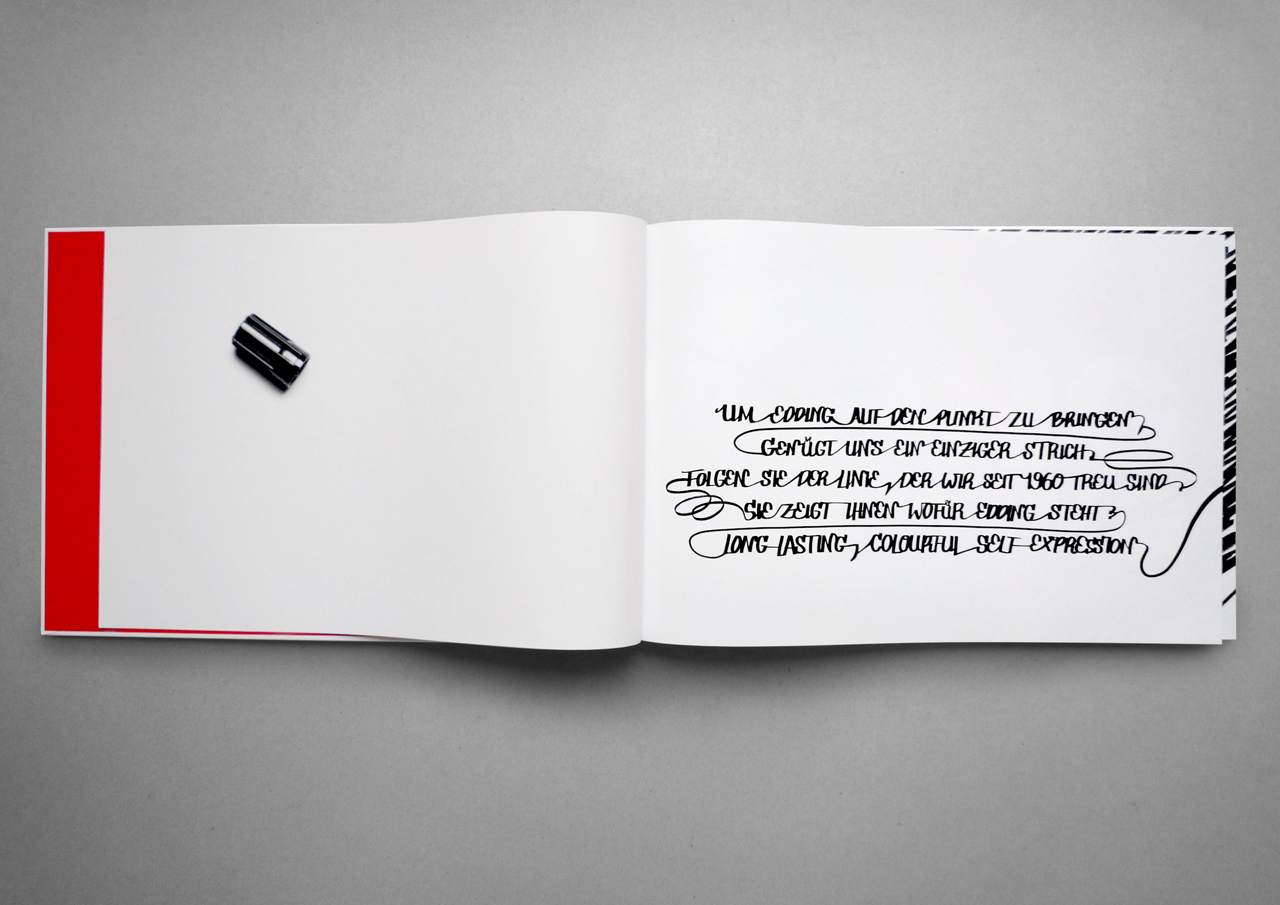 UM EDDING AUF DEN PUNKT ZU BRINGEN,
GENÜGT UNS EIN EINZIGER STRICH.
FOLGEN SIE DER LINIE, DER WIR SEIT 1960 TREU SIND.
SIE ZEIGT IHNEN WOFÜR EDDING STEHT:
LONG LASTING, COLOURFUL SELF EXPRESSION